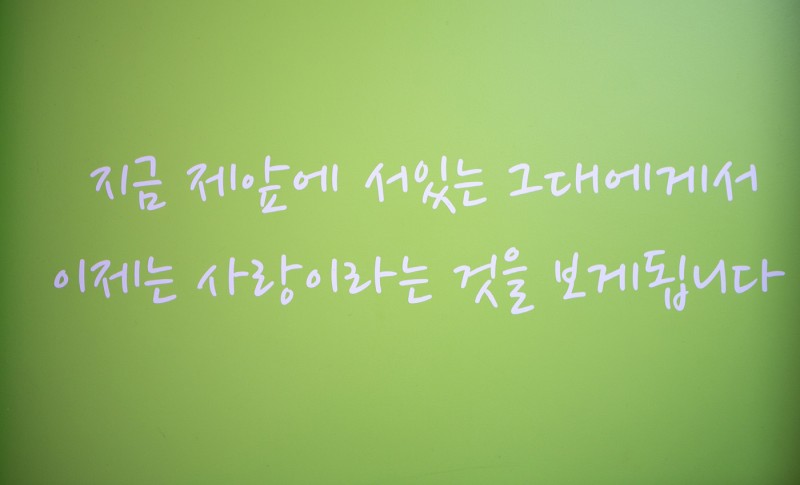 지금 제앞에 서있는 그대에게서
이제는 사랑이라는 것을 보게됩니다